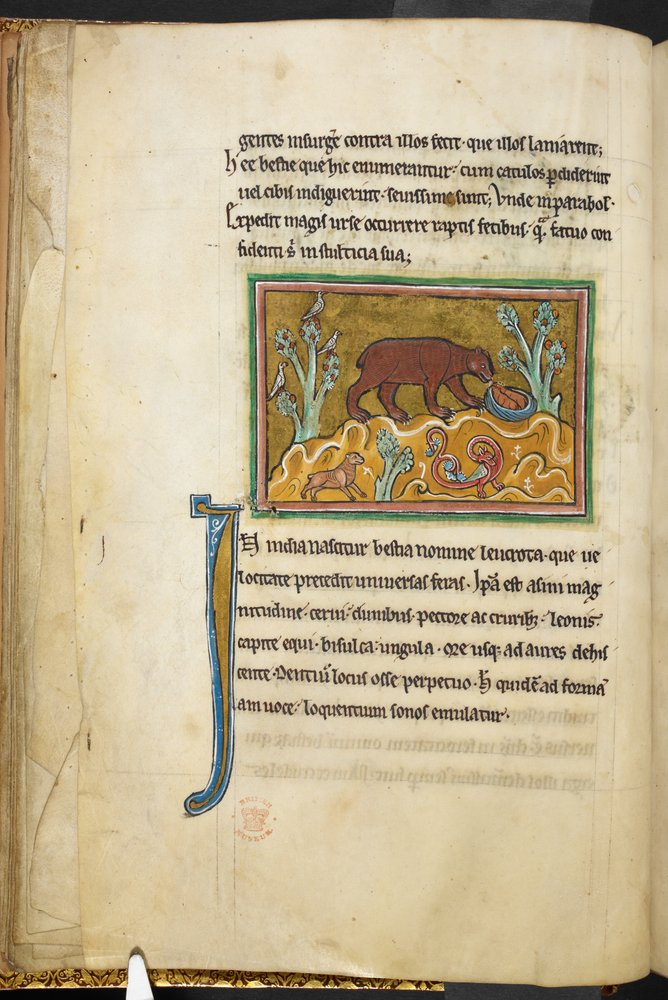 gentes insurgֿe contra illos fecit · que illos laniarent;
hee bestie que hic enumerantur · cum catulos ꝑdiderint
uel cibis indiguerint · seuissime sunt; Vnde in parabol̛ ·
Expedit magis urse occurrere raptis fetibus · qͣ fatuo con
fidenti s̛ in stulticia sua;
IN india nascitur bestia nomine leucrota · que ue
locitate precedit uniuersas feras · Ip̄a est asini mag
nitudine · cerui clunibus · pectore ac cruribꝫ · leonis ·
capite equi · bisulca ungula · ore usqꝫ ad aures dehis
cente · Dentiū locus osse perpetuo · H̛ quidē ad formā
nam uoce · loquentium sonos emulatur ·
BRITISH
MUSEUM